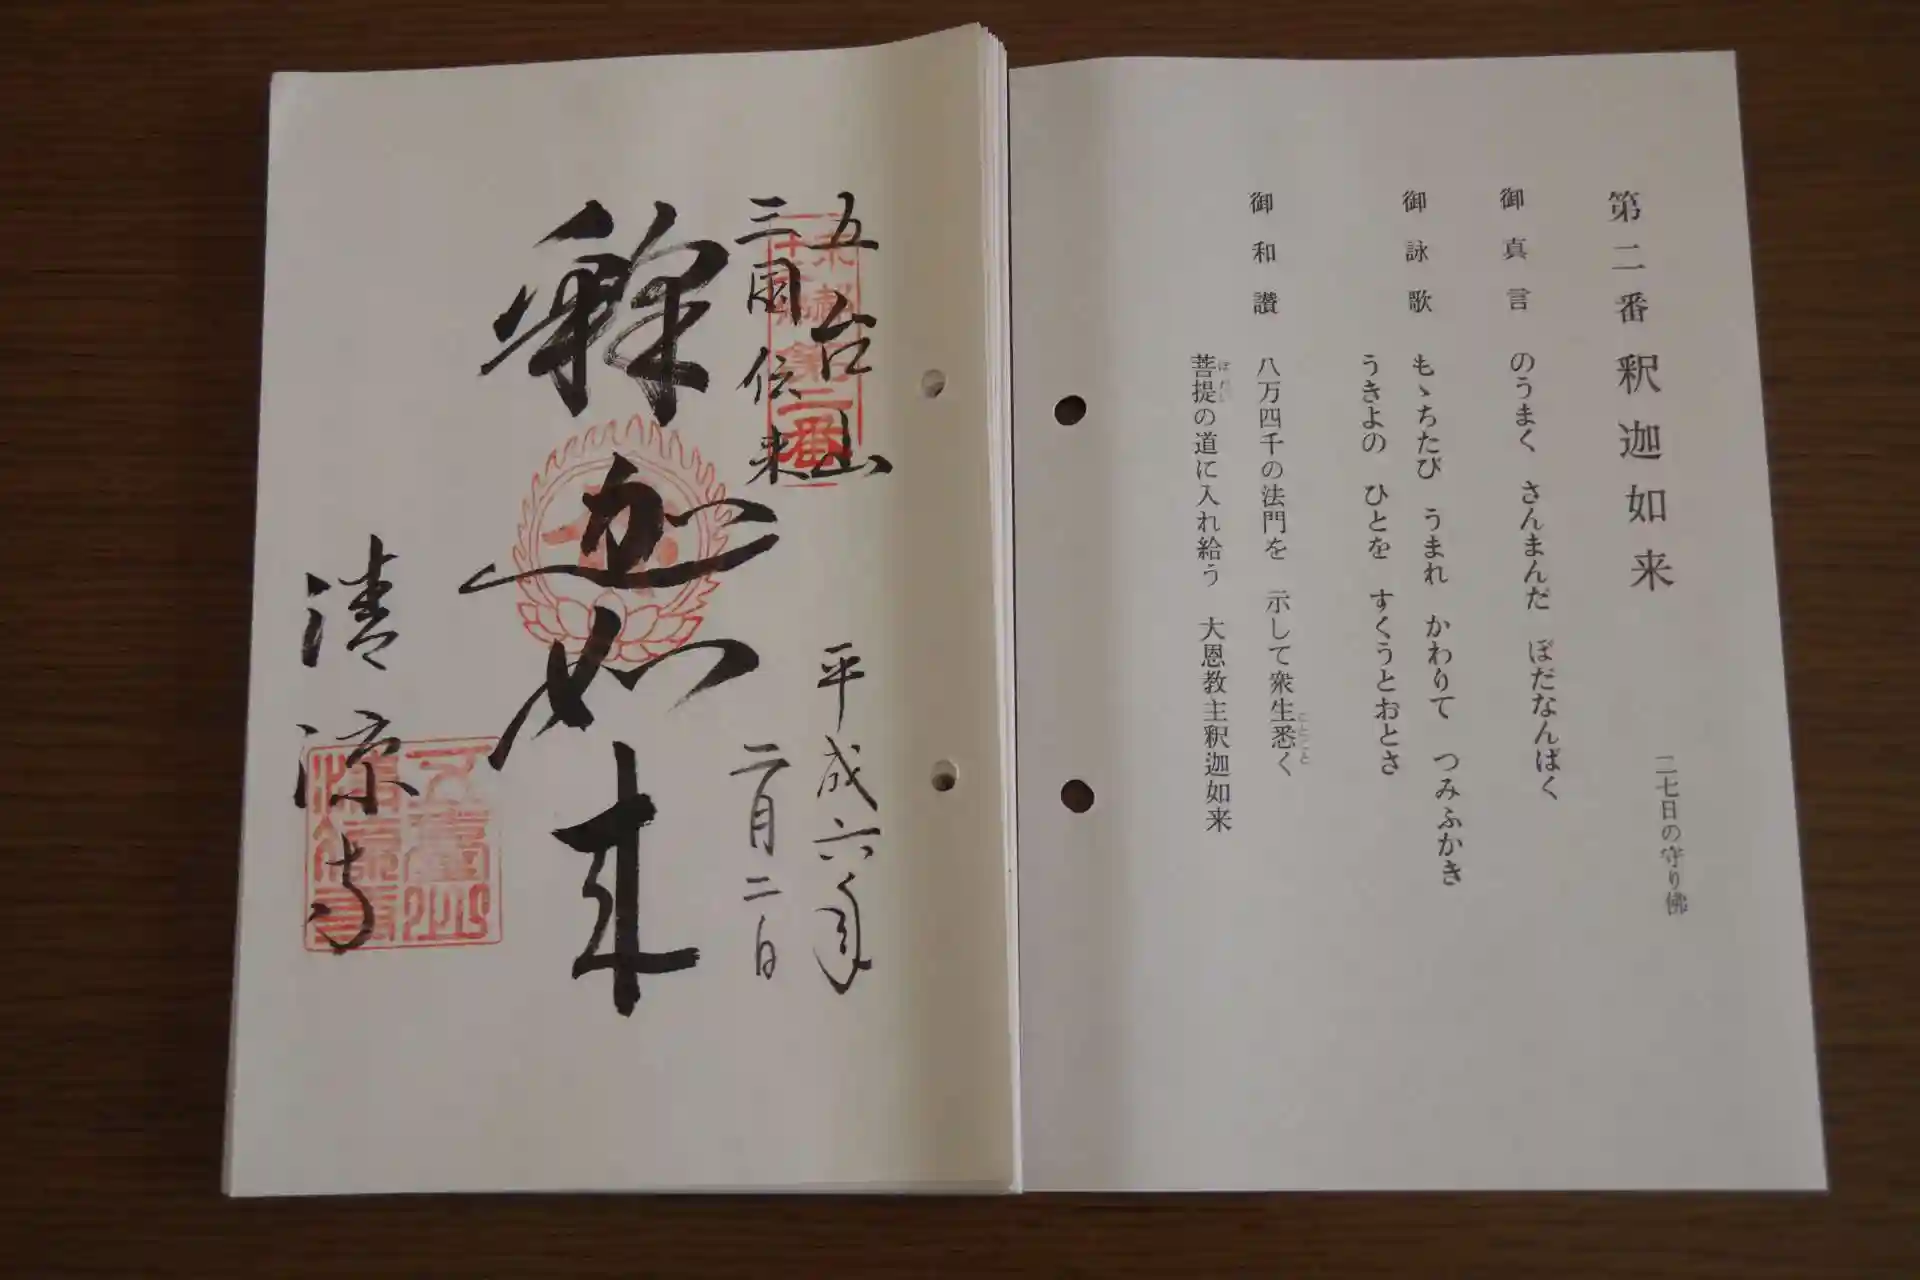 第二番 釈迦如来
二七日の守り佛
御真言 のうまく さんまんだ ぼだなんばく
御詠歌 もゝちたび うまれ かわりて つみふかき
うきよの ひとを すくうとおとさ
御和讃 八万四千の法門を 示して衆生悉く
ことごと
菩提の道に入れ給う 大恩教主釈迦如来
ぼだい
五台山
三国伝来
京都
十三佛
第二番
平成六年
二月二日
釋迦如来
清涼寺
五臺山
清凉寺